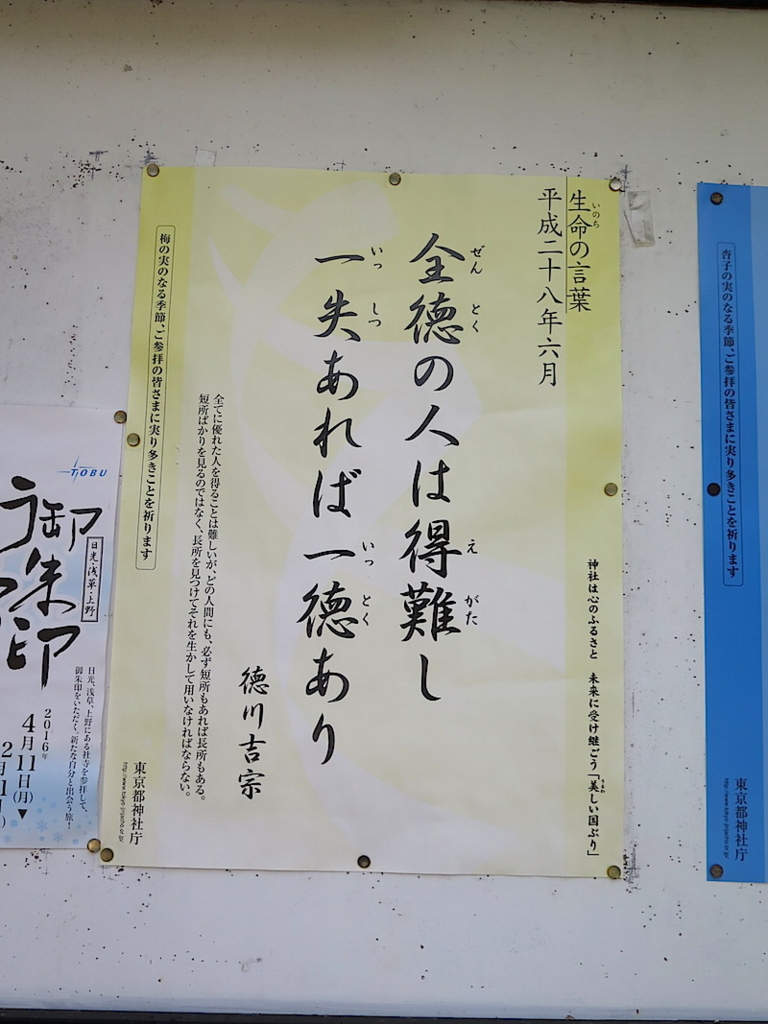 生命の言葉
いのち
平成二十八年六月
神社は心のふるさと 未来に受け継ごう「美しい国ぶり」
全徳の人は得難し
ぜん とく え がた
一失あれば一徳あり
いっ しつ いっ とく
徳川吉宗
全てに優れた人を得ることは難しいが、どの人間にも、必ず短所もあれば長所もある。
短所ばかりを見るのではなく、長所を見つけてそれを生かして用いなければならない。
梅の実のなる季節、ご参拝の皆さまに実り多きことを祈ります
東京都神社庁
http://www.tokyo-jinjacho.or.jp/
杏子の実のなる季節、ご参拝の皆さまに実り多きことを祈ります
東京都神社庁
http://www.tokyo-jinjacho.or.jp/
TOBU
御朱印
日光・浅草・上野
日光、浅草、上野にある社寺を参拝して、
御朱印をいただく。新たな自分と出会う旅!
2016年
4月11日(月)▼